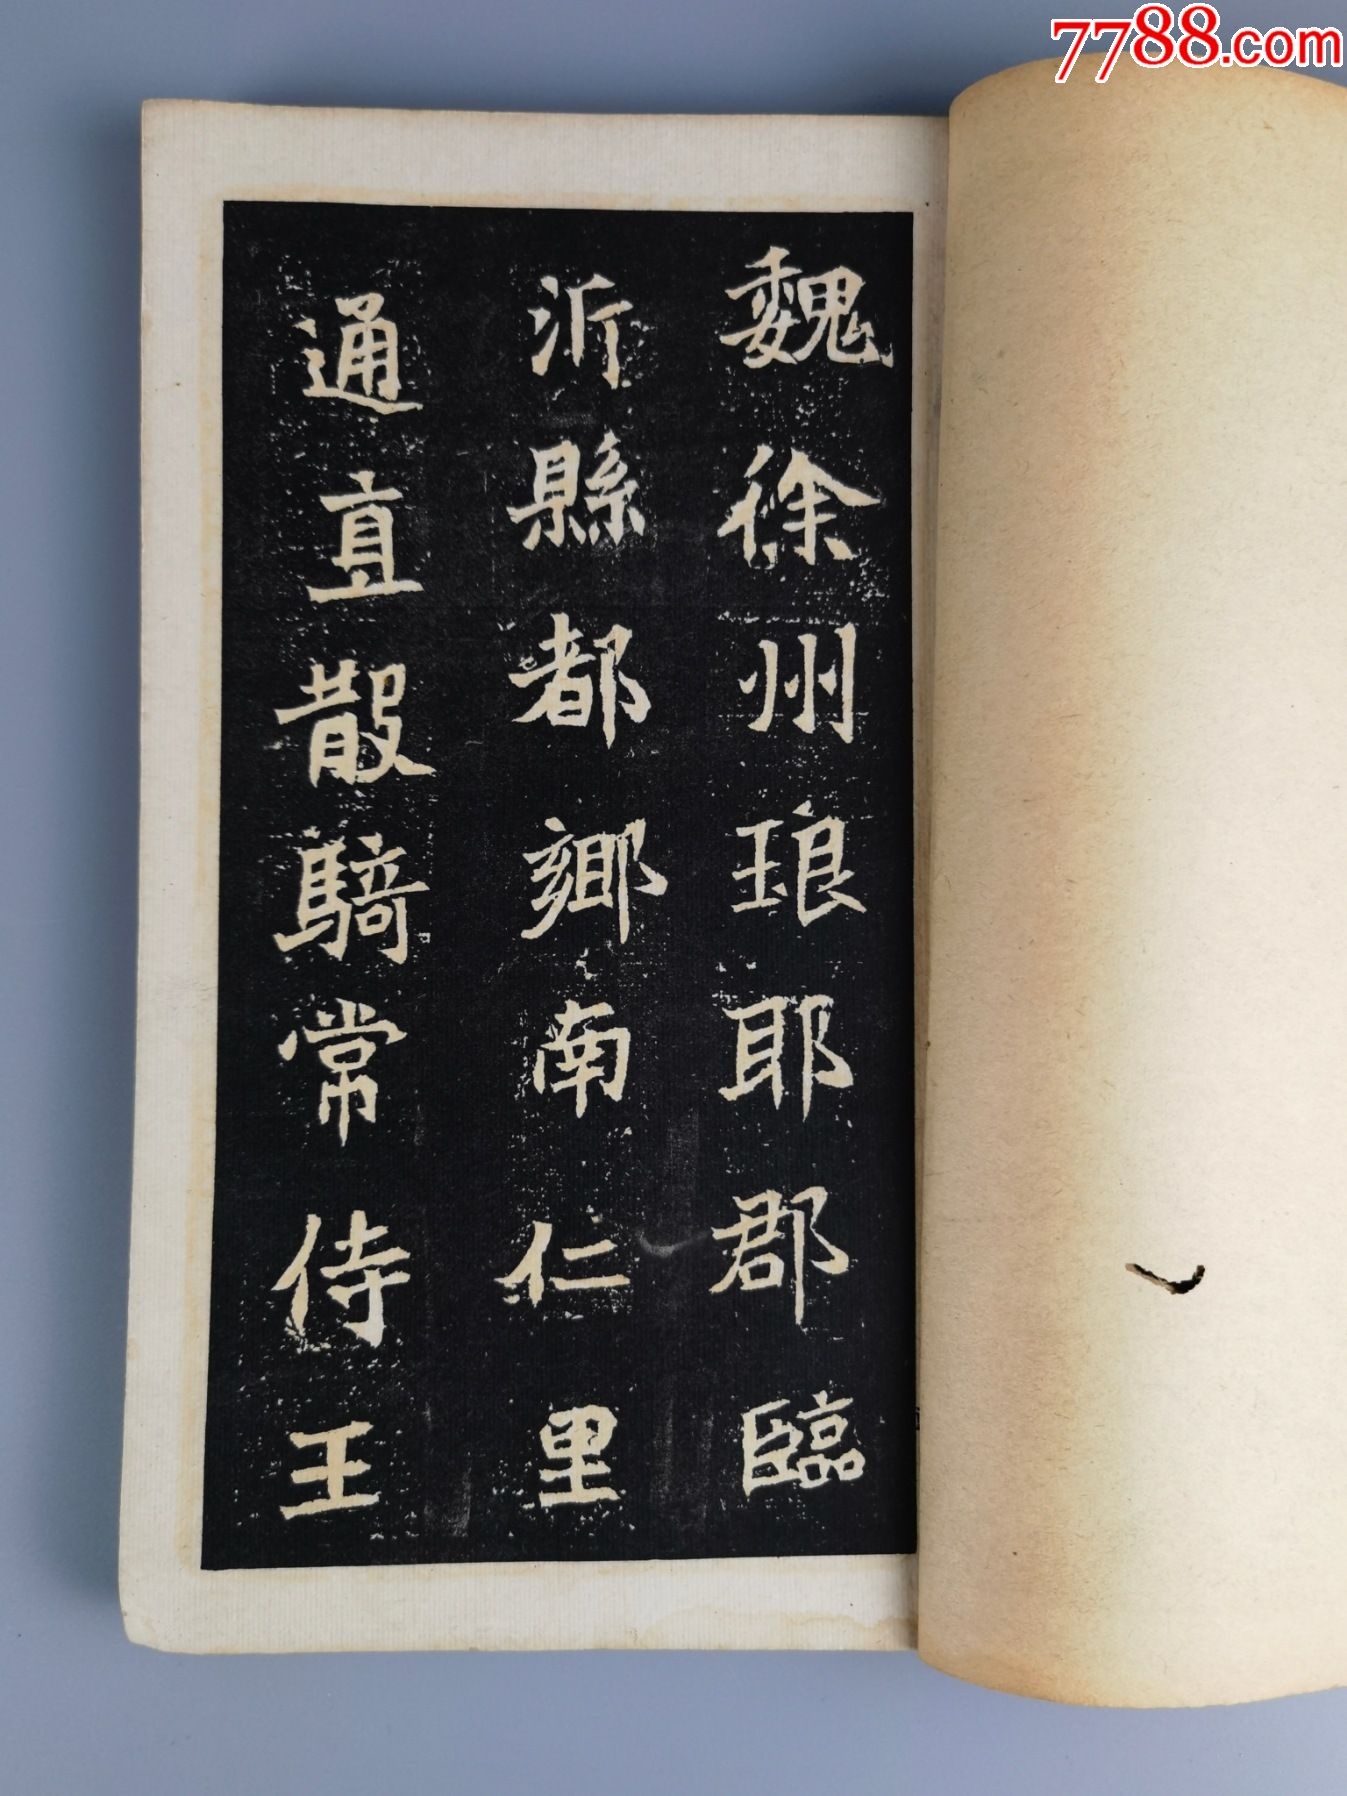 7788.com
魏徐州琅耶郡臨
沂縣都鄉南仁里
通直散騎常侍王